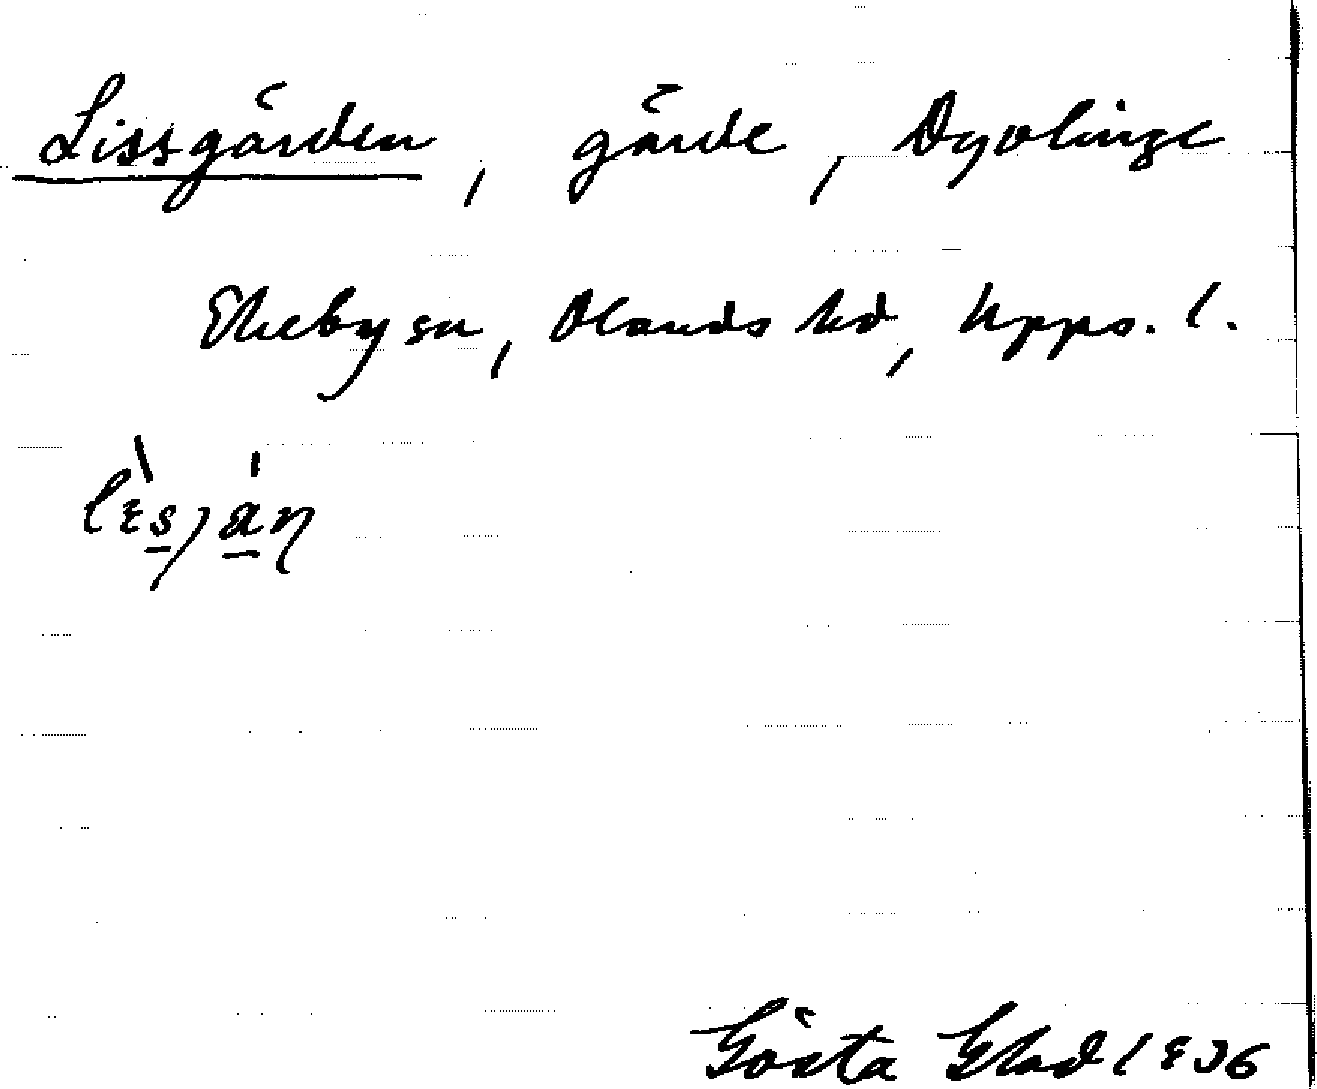 Lissgärden, gärde, Dyvlinge
Ekeby sn, Olands hd, Upps. l.
Gösta Glad 1936